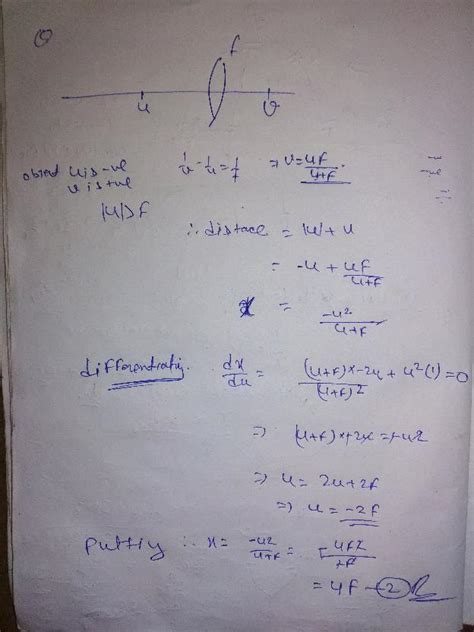 f
u v
object u is -ve
v is +ve
1/v - 1/u = 1/f ⇒ v = uf/u+f
|u|>f
∴ distace = |u| + u
= -u + uf/u+f
x = -u²/u+f
differentiating dx/du = (u+f)x-2u + u²(1)/(u+f)² = 0
⇒ (u+f)x+2x = +u2
⇒ u = 2u+2f
⇒ u = -2f
putting ∴ x = -u2/u+f = -4f2/+f
= 4f - 2